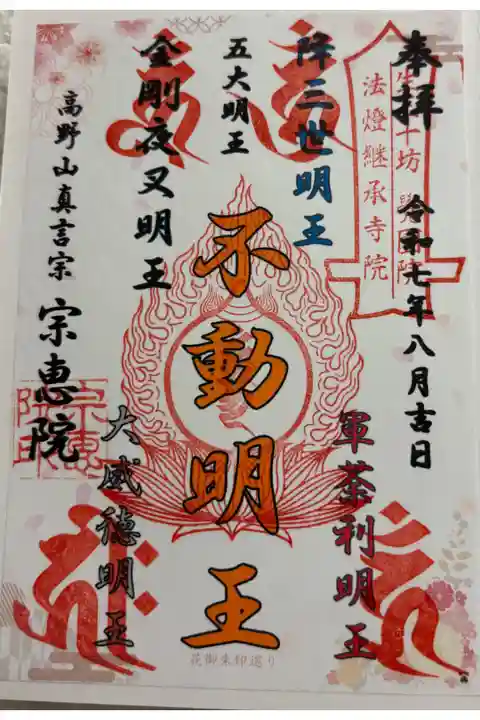 奉拝
令和七年八月吉日
法燈継承寺院
降三世明王
軍荼利明王
五大明王
不動明王
金剛夜叉明王
大威徳明王
高野山真言宗
宗恵院
宗恵
院印
花御朱印巡り